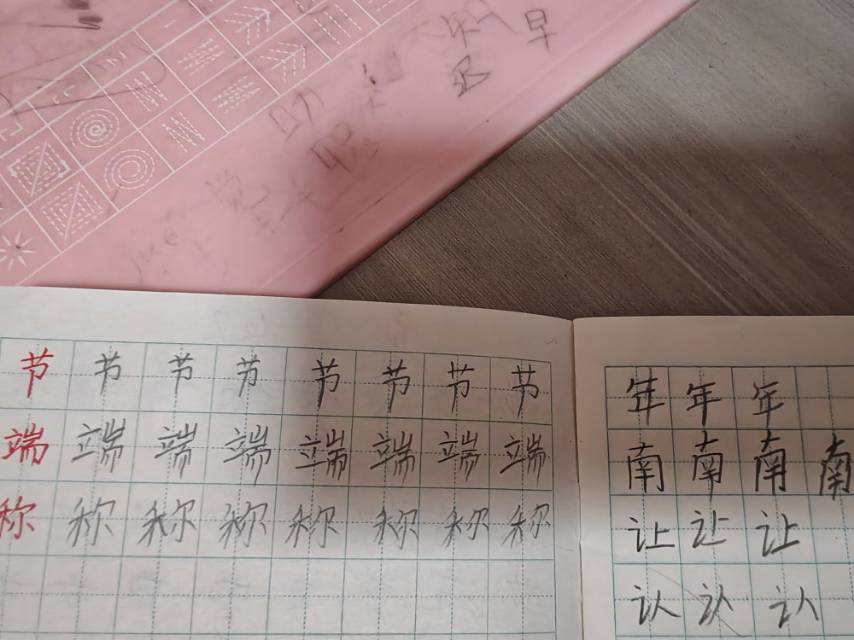 早
迟
助
节 节 节 节 节 节 节 节
端 端 端 端 端 端 端 端
称 称 称 称 称 称 称 称
年 年 年
南 南 南 南
让 让 让
认 认 认